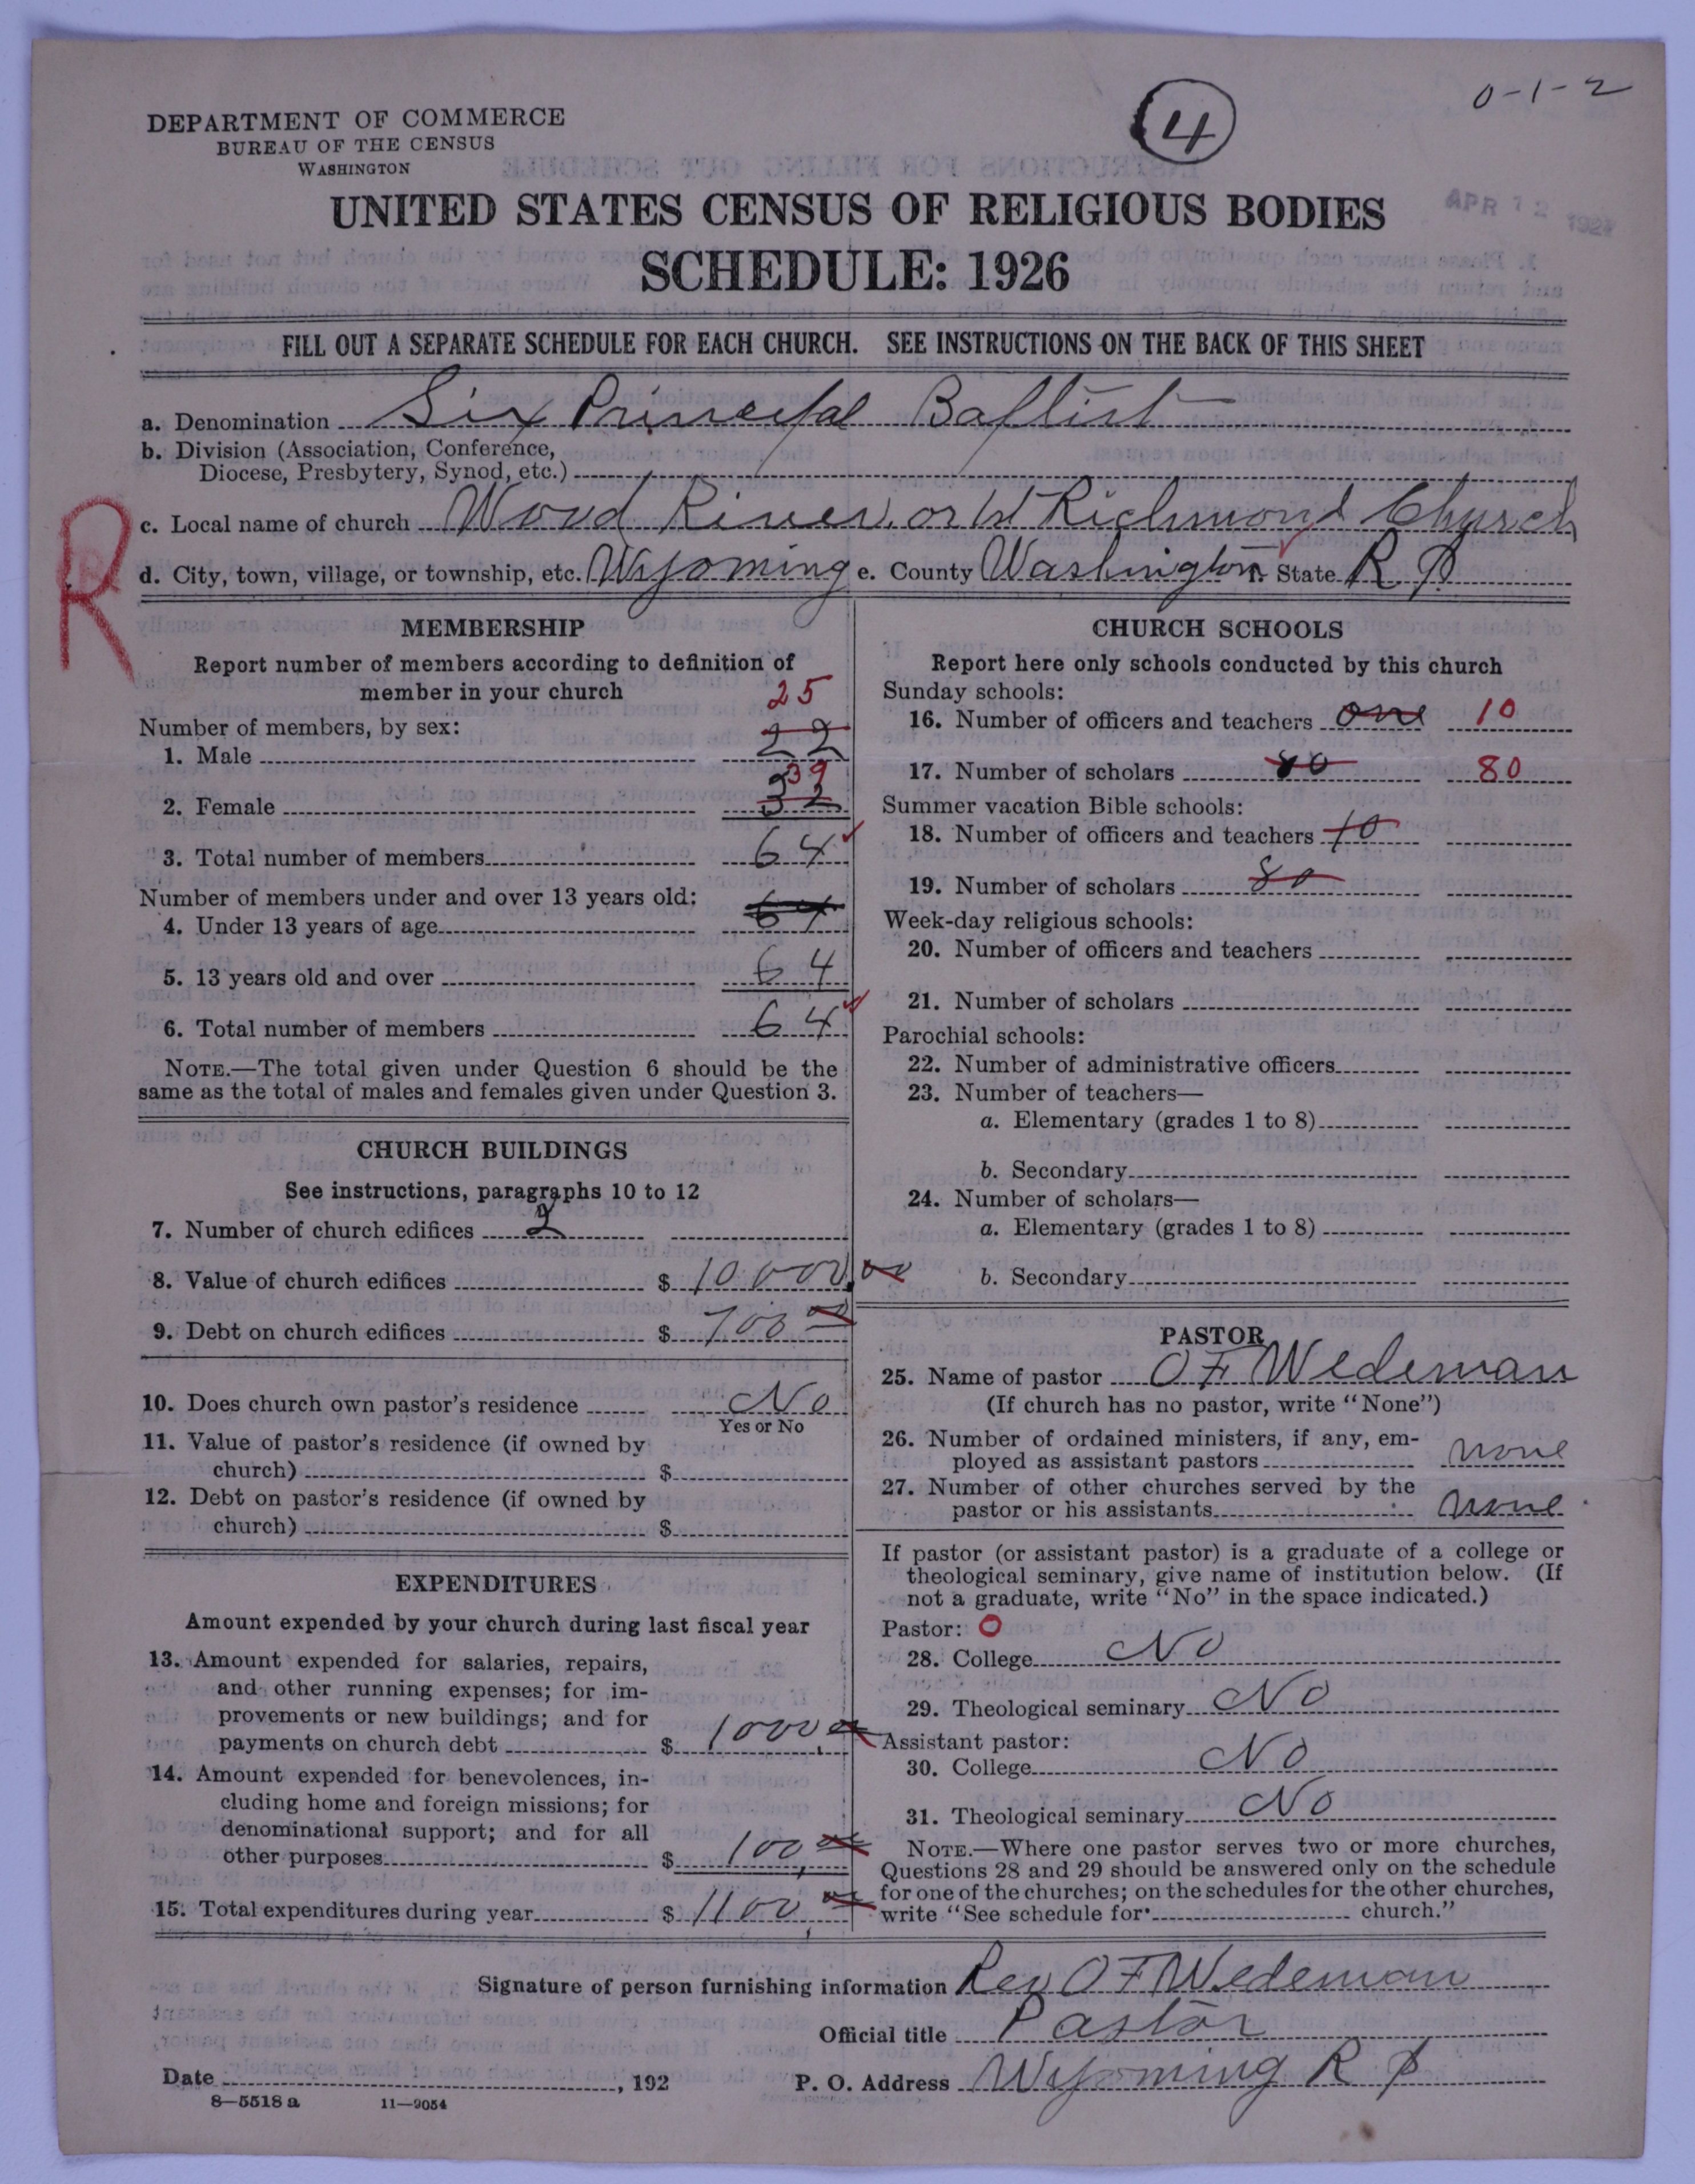 0-1-2
4
DEPARTMENT OF COMMERCE
BUREAU OF THE CENSUS
WASHINGTON
APR 12 1927
UNITED STATES CENSUS OF RELIGIOUS BODIES
SCHEDULE: 1926
FILL OUT A SEPARATE SCHEDULE FOR EACH CHURCH. SEE INSTRUCTIONS ON THE BACK OF THIS SHEET
a. Denomination Six Principal Baptist
b. Division (Association, Conference,
Diocese, Presbytery, Synod, etc.)
R
c. Local name of church Wood River or 1st Richmond Church
d. City, town, village, or township, etc. Wyoming e. County Washington f. State R I
MEMBERSHIP
Report number of members according to definition of
member in your church
25
Number of members, by sex:
1. Male 22
39
2. Female 32
3. Total number of members 64
Number of members under and over 13 years old:
4. Under 13 years of age 64
5. 13 years old and over 64
6. Total number of members 64
NOTE.—The total given under Question 6 should be the
same as the total of males and females given under Question 3.
CHURCH BUILDINGS
See instructions, paragraphs 10 to 12
7. Number of church edifices 2
8. Value of church edifices $ 10,000.00
9. Debt on church edifices $ 700 00
10. Does church own pastor's residence No
Yes or No
11. Value of pastor's residence (if owned by
church) $
12. Debt on pastor's residence (if owned by
church) $
EXPENDITURES
Amount expended by your church during last fiscal year
13. Amount expended for salaries, repairs,
and other running expenses; for im-
provements or new buildings; and for
payments on church debt $ 1000.00
14. Amount expended for benevolences, in-
cluding home and foreign missions; for
denominational support; and for all
other purposes $ 100.00
15. Total expenditures during year $ 1100.00
CHURCH SCHOOLS
Report here only schools conducted by this church
Sunday schools:
16. Number of officers and teachers one 10
17. Number of scholars 80 80
Summer vacation Bible schools:
18. Number of officers and teachers 10
19. Number of scholars 80
Week-day religious schools:
20. Number of officers and teachers
21. Number of scholars
Parochial schools:
22. Number of administrative officers
23. Number of teachers—
a. Elementary (grades 1 to 8)
b. Secondary
24. Number of scholars—
a. Elementary (grades 1 to 8)
b. Secondary
PASTOR
25. Name of pastor O F Wedeman
(If church has no pastor, write "None")
26. Number of ordained ministers, if any, em-
ployed as assistant pastors none
27. Number of other churches served by the
pastor or his assistants none
If pastor (or assistant pastor) is a graduate of a college or
theological seminary, give name of institution below. (If
not a graduate, write "No" in the space indicated.)
Pastor: O
28. College No
29. Theological seminary No
Assistant pastor:
30. College No
31. Theological seminary No
NOTE.—Where one pastor serves two or more churches,
Questions 28 and 29 should be answered only on the schedule
for one of the churches; on the schedules for the other churches,
write "See schedule for church."
Signature of person furnishing information Rev O F Wedeman
Official title Pastor
Date , 192 P. O. Address Wyoming R I
8—5518 a 11—9054